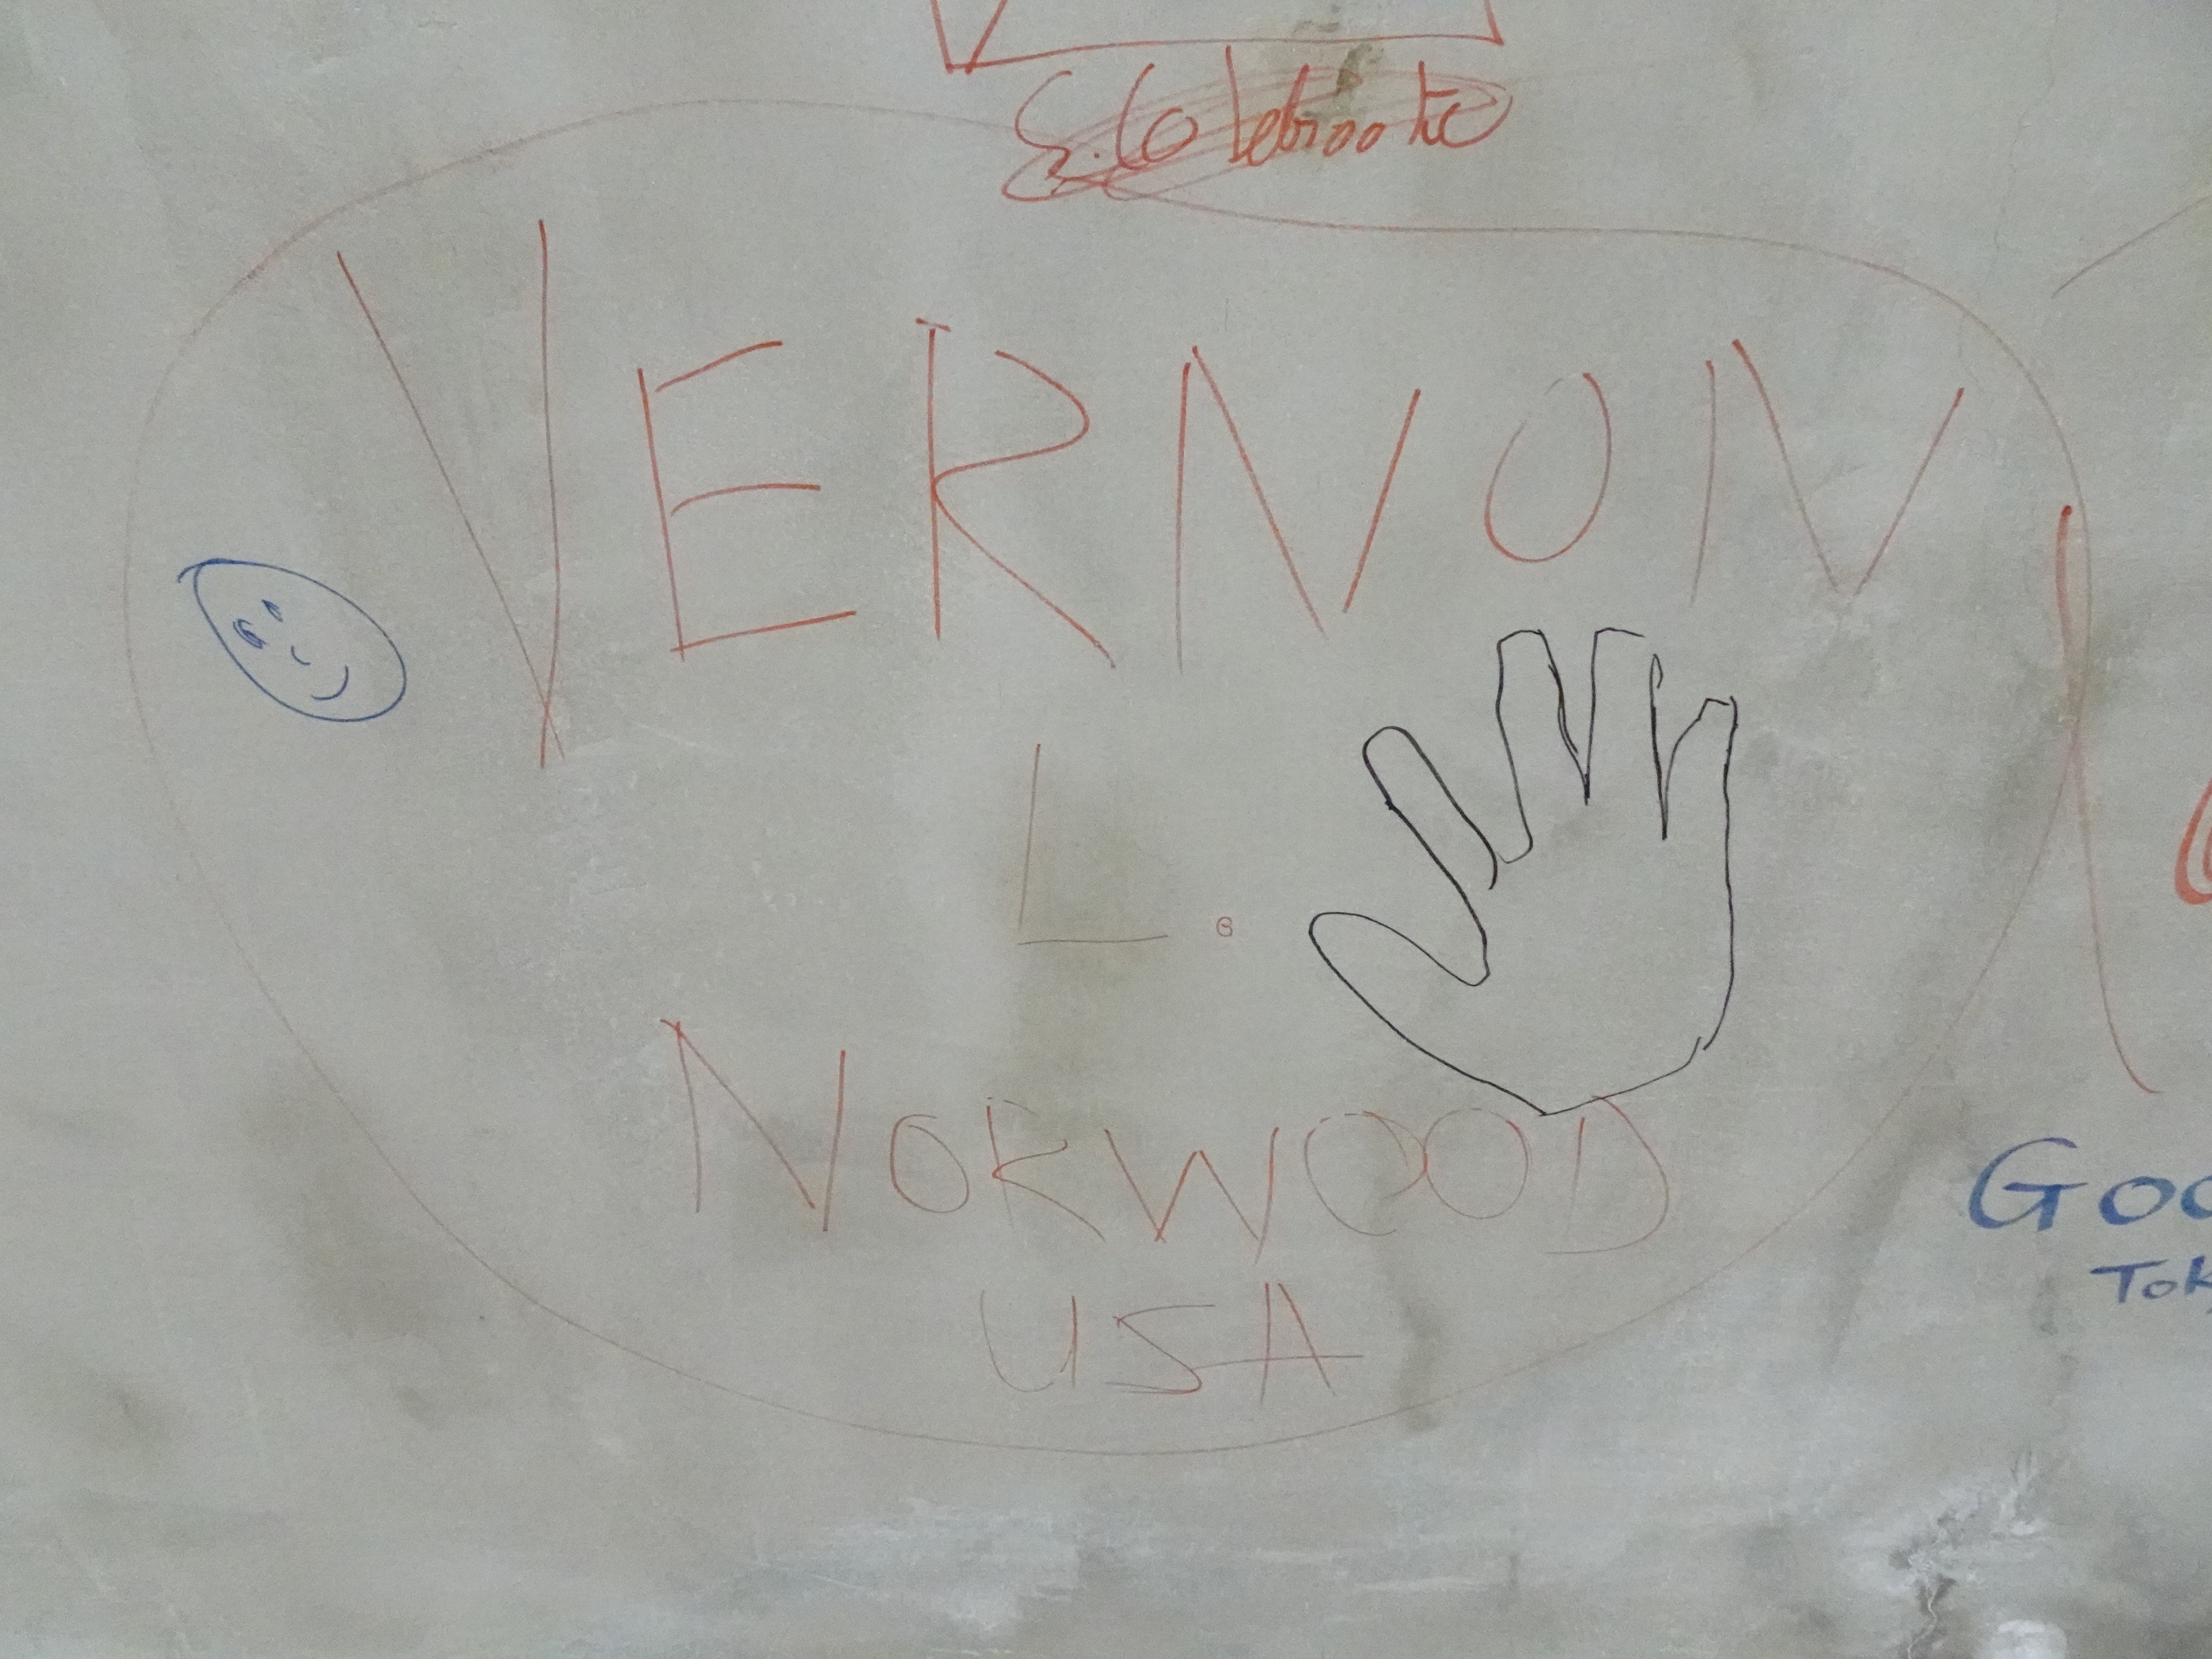 E. Colebrooke
VERNON
L.
NORWOOD
USA